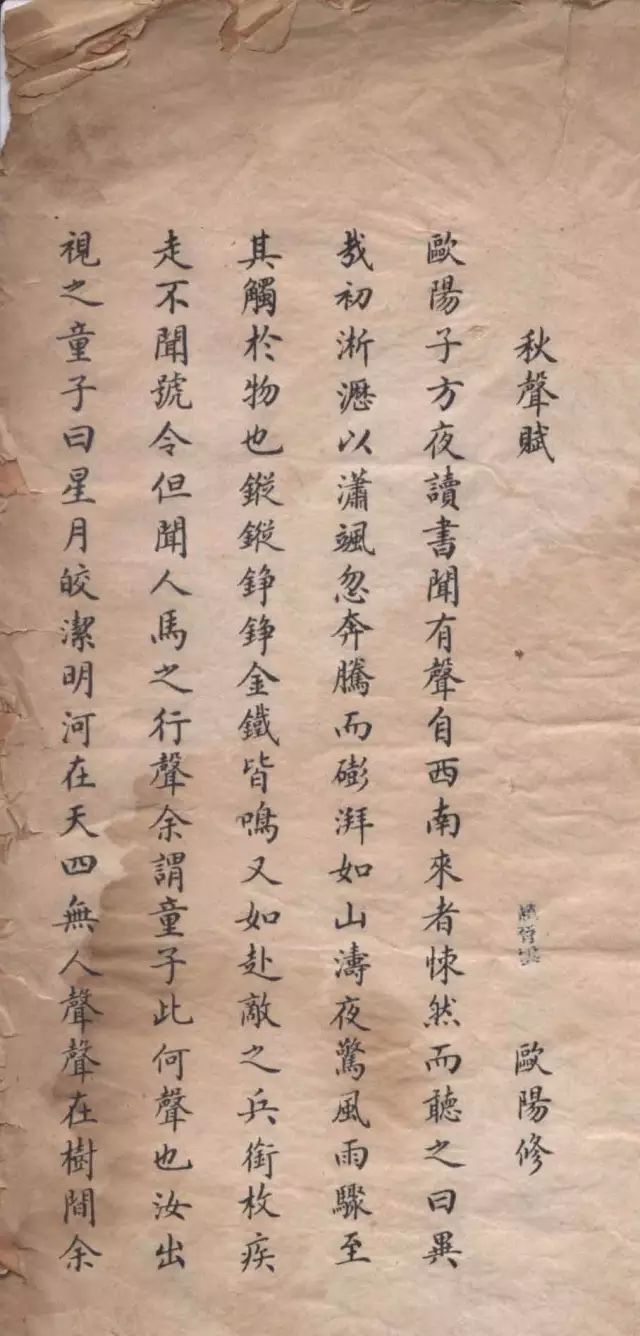 秋聲賦
歐陽修
歐陽子方夜讀書聞有聲自西南來者悚然而聽之曰異
哉初淅瀝以瀟颯忽奔騰而澎湃如山濤夜驚風雨驟至
其觸於物也鏦鏦錚錚金鐵皆鳴又如赴敵之兵銜枚疾
走不聞號令但聞人馬之行聲余謂童子此何聲也汝出
視之童子曰星月皎潔明河在天四無人聲聲在樹間余